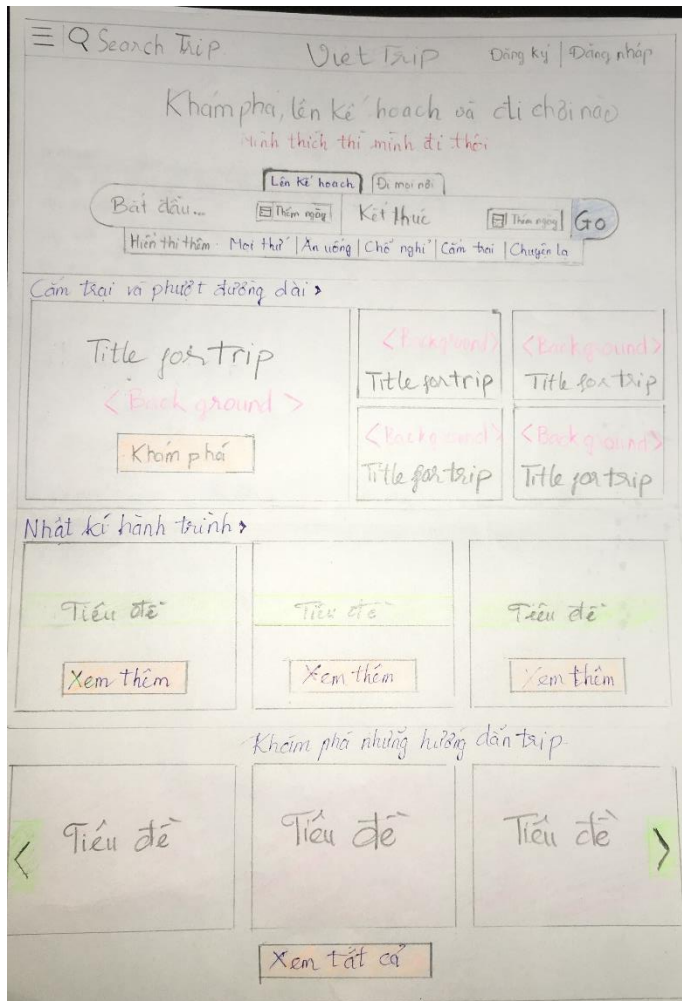 Search Trip Viet Trip Đăng ký | Đăng nhập
Khám phá, lên kế hoạch và đi chơi nào
Mình thích thì mình đi thôi
Lên kế hoạch Đi mọi nơi
Bắt đầu... Thêm ngày Kết thúc Thêm ngày Go
Hiển thị thêm Mọi thứ | Ăn uống | Chỗ nghỉ | Cắm trại | Chuyện lạ
Cắm trại và phượt đường dài >
Title for trip
<Background>
Khám phá
<Background> <Background>
Title for trip Title for trip
<Background> <Background>
Title for trip Title for trip
Nhật kí hành trình >
Tiêu đề Tiêu đề Tiêu đề
Xem thêm Xem thêm Xem thêm
Khám phá những hướng dẫn trip
< Tiêu đề Tiêu đề Tiêu đề >
Xem tất cả